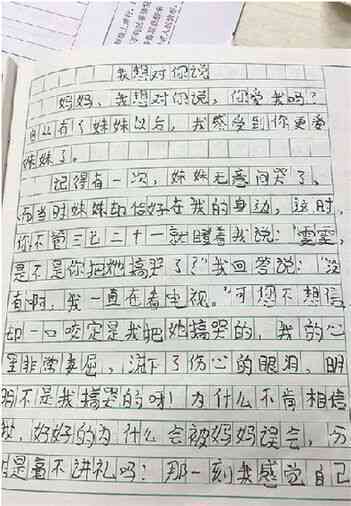 我想对你说
妈妈，我想对你说，你爱我吗？
自从有了妹妹以后，我感受到你更爱
妹妹了。
记得有一次，妹妹无意间哭了，
而当时妹妹却恰好在我的身边，这时，
你不管三七二十一就瞪着我说：“雯雯，
是不是你把她搞哭了？”我回答说：“没
有啊，我一直在看电视。”可您不想信
切一口咬定是我把她搞哭的，我的心
里非常委屈，流下了伤心的眼泪，明
明不是我搞哭的呀！为什么不肯相信
我，好好的为什么会被妈妈误会，
是毫不讲礼吗？那一刻我感觉自己